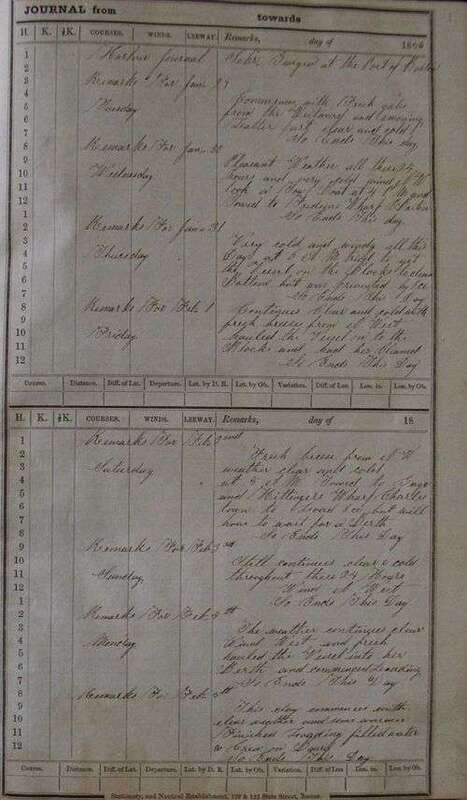 JOURNAL from towards
H. K. ½K. COURSES. WINDS. LEEWAY. Remarks, day of 1866
1 Harbor Journal Schr. at the Port of Boston
2
3 Remarks For Jan 29
4 Commences with Fresh gales
5 Tuesday from the Westward and
6 latter part clear and cold
7 So Ends This day
8 Remarks For Jan 30
9 Pleasant Weather all these 24
10 Wednesday hours and very cold wind N W
11 took a Tow Boat at 4 P M and
12 Towed to Wharf
1 So Ends This day
2 Remarks For Jan 31
3 Very cold and windy all this
4 Thursday Day at 8 A M tried to get
5 the Vessel on the Blocks to clean
6 Bottom but was prevented by ice
7 So Ends This Day
8 Remarks For Feb 1
9 Continues Clear and cold with
10 fresh breeze from N West
11 Friday hauled the Vessel in to the
12 Blocks and had her cleaned
So Ends This Day
Course. Distance. Diff. of Lat. Departure. Lat. by D. R. Lat. by Ob. Variation. Diff. of Lon. Lon. in. Lon. by Ob.
H. K. ½K. COURSES. WINDS. LEEWAY. Remarks, day of 18
1 Remarks For Feb 2nd
2 Fresh breeze from N W
3 Saturday weather clear and cold
4 at 9 A M Towed to Gage
5 and Hittingers Wharf Charles
6 town to load Ice but will
7 have to wait for a Berth
8 So Ends This Day
9 Remarks For Feb 3rd
10 Still continues clear & cold
11 Sunday throughout these 24 Hours
12 Wind N West
1 So Ends This Day
2 Remarks For Feb 4th
3 The weather continues clear
4 Wind West and fresh
5 Monday hauled the Vessel into her
6 Berth and commenced Loading
7 So Ends This Day
8 Remarks For Feb 5th
9 This day commences with
10 clear weather and some warmer
11 Finished Loading filled water
12
So Ends This Day
Course. Distance. Diff. of Lat. Departure. Lat. by D. R. Lat. by Ob. Variation. Diff. of Lon. Lon. in. Lon. by Ob.
Stationery, and Nautical Establishment, State Street, Boston.